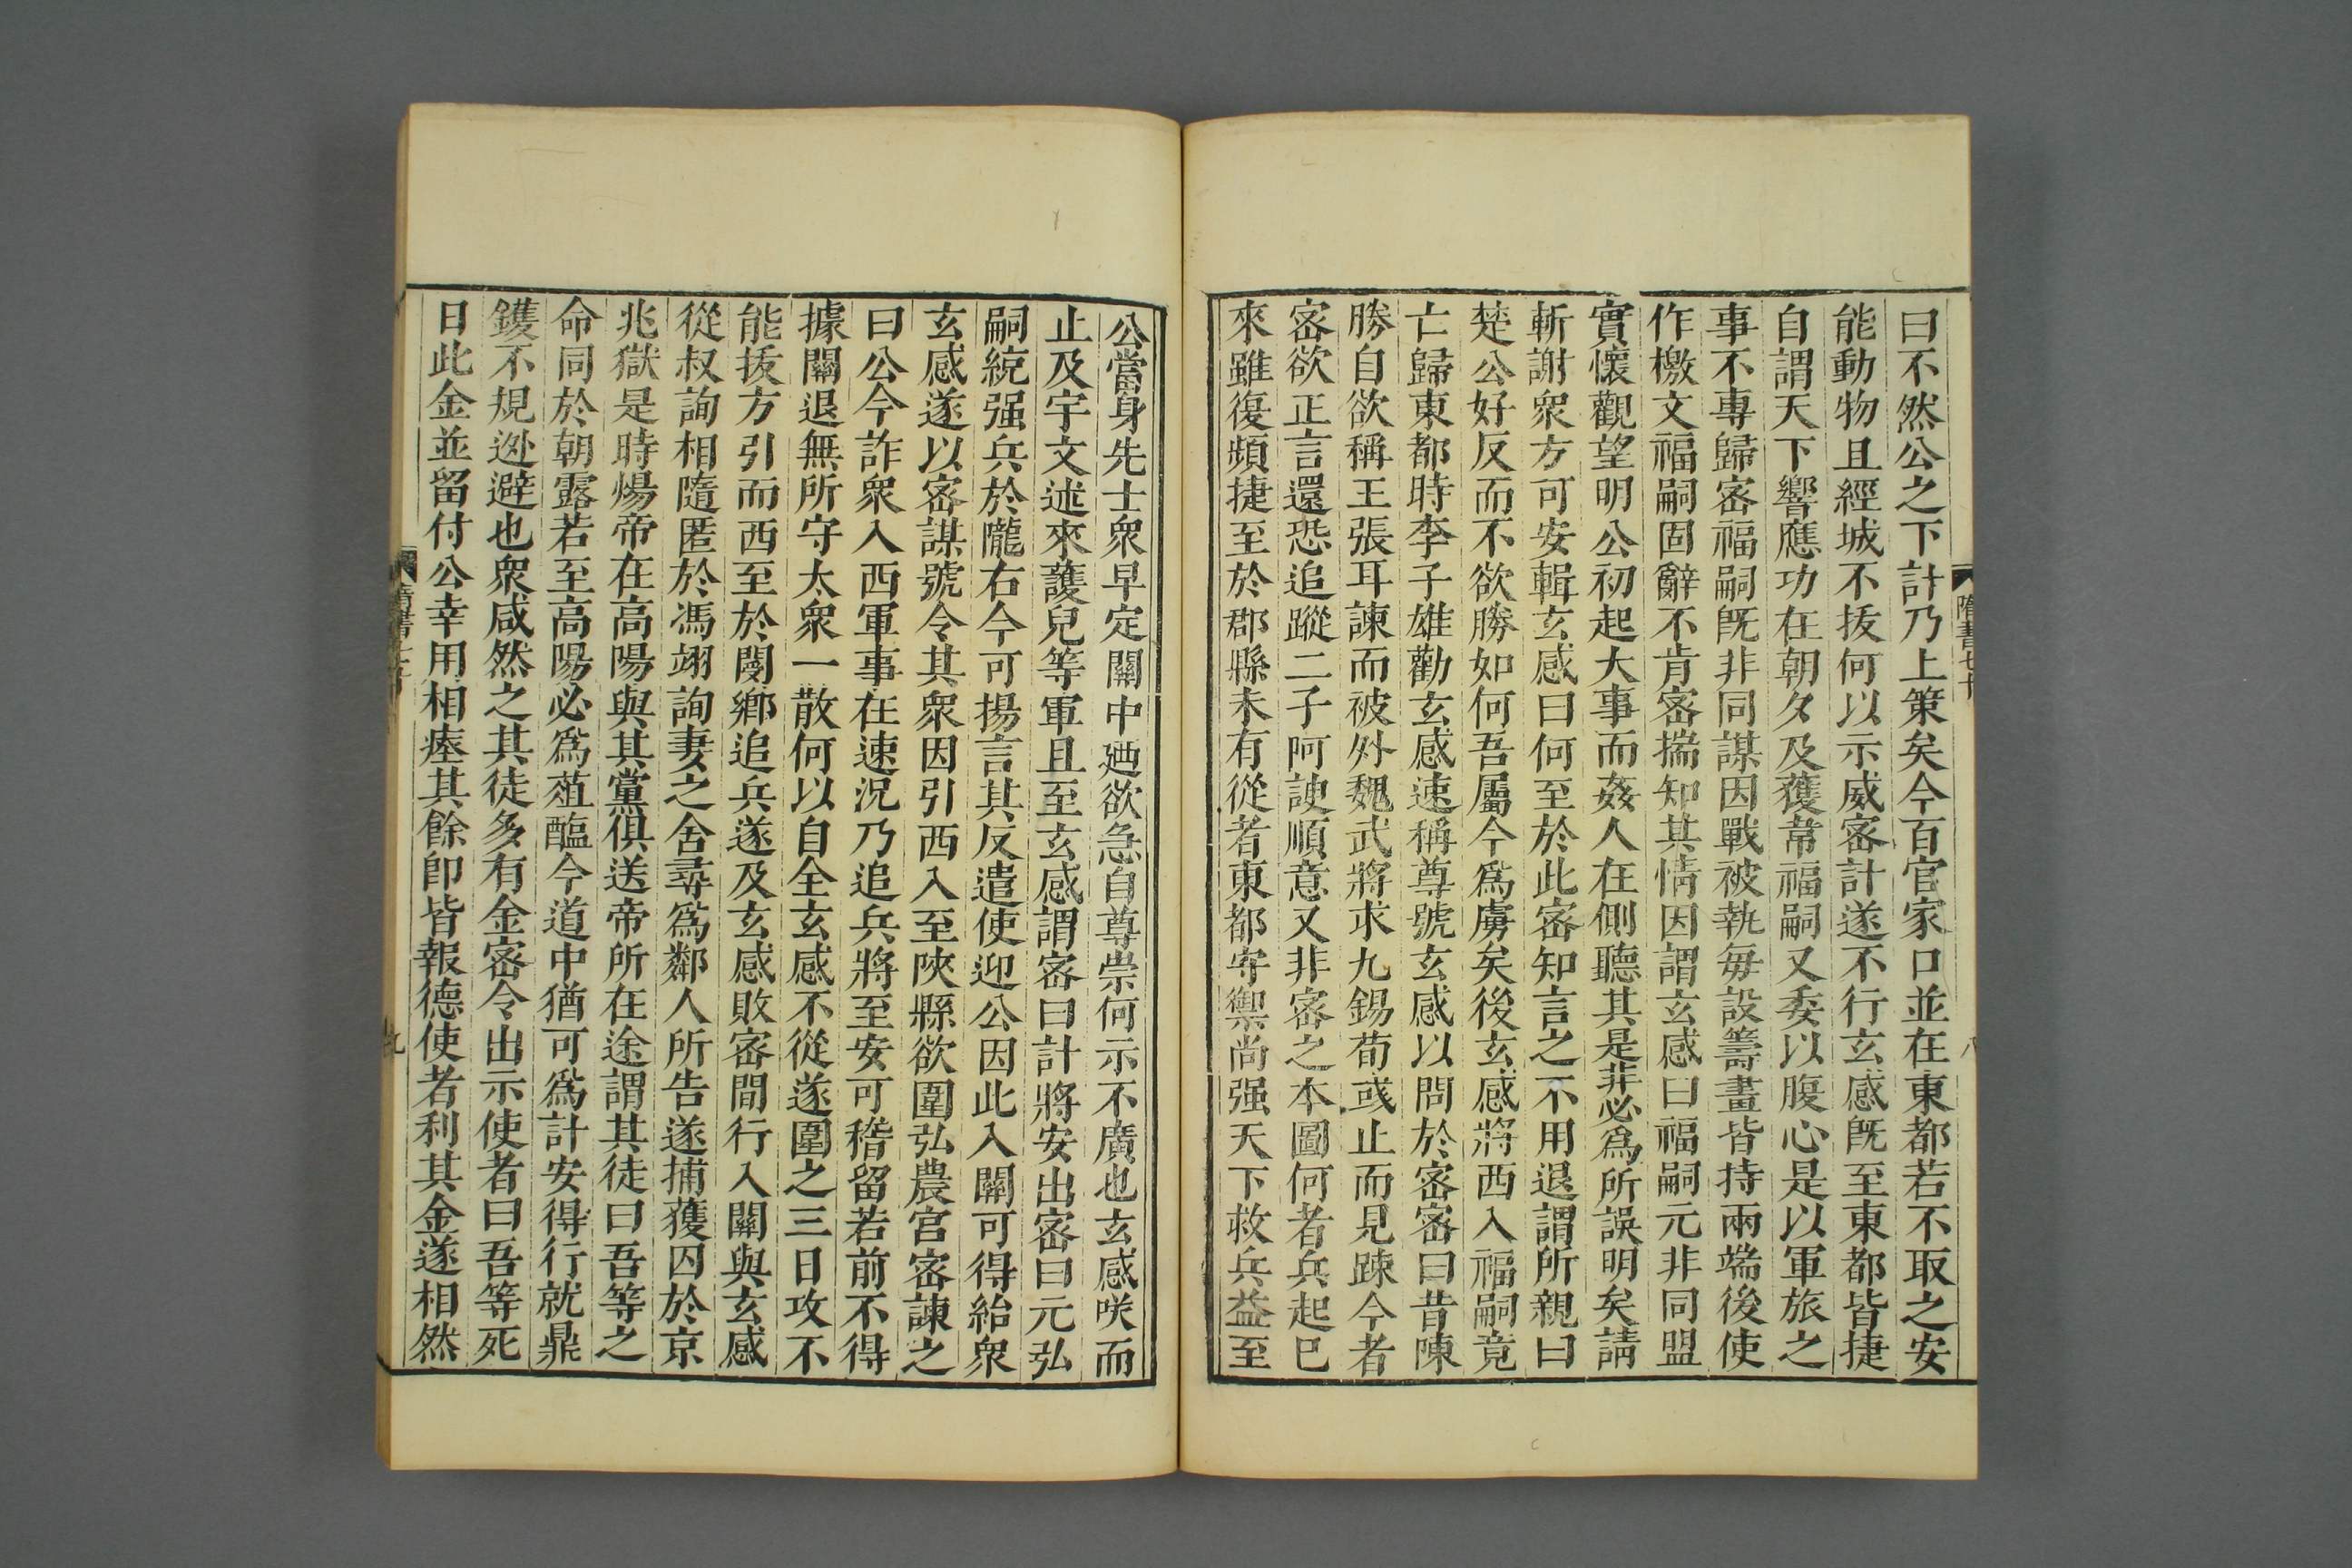 曰不然公之下計乃上策矣今百官家口並在東都若不取之安
能動物且經城不拔何以示威密計遂不行玄感旣至東都皆捷
自謂天下響應功在朝夕及獲韋福嗣又委以腹心是以軍旅之
事不專歸密福嗣旣非同謀因戰被執每設籌畫皆持兩端後使
作檄文福嗣固辭不肯密揣知其情因謂玄感曰福嗣元非同盟
實懷觀望明公初起大事而姦人在側聽其是非必爲所誤明矣請
斬謝衆方可安輯玄感曰何至於此密知言之不用退謂所親曰
楚公好反而不欲勝如何吾屬今爲虜矣後玄感將西入福嗣竟
亡歸東都時李子雄勸玄感速稱尊號玄感以問於密密曰昔陳
勝自欲稱王張耳諫而被外魏武將求九錫荀彧止而見踈今者
密欲正言還恐追蹤二子阿諛順意又非密之本圖何者兵起已
來雖復頻捷至於郡縣未有從者東都守禦尚强天下救兵益至
隋書七十
公當身先士衆早定關中廼欲急自尊崇何示不廣也玄感咲而
止及宇文述來護兒等軍且至玄感謂密曰計將安出密曰元弘
嗣統强兵於隴右今可揚言其反遣使迎公因此入關可得紿衆
玄感遂以密謀號令其衆因引西入至陝縣欲圍弘農宮密諫之
曰公今詐衆入西軍事在速況乃追兵將至安可稽留若前不得
據關退無所守大衆一散何以自全玄感不從遂圍之三日攻不
能拔方引而西至於閿鄉追兵遂及玄感敗密間行入關與玄感
從叔詢相隨匿於馮翊詢妻之舍尋爲鄰人所告遂捕獲囚於京
兆獄是時煬帝在高陽與其黨俱送帝所在途謂其徒曰吾等之
命同於朝露若至高陽必爲葅醢今道中猶可爲計安得行就鼎
鑊不規迯避也衆咸然之其徒多有金密令出示使者曰吾等死
日此金並留付公幸用相瘞其餘卽皆報德使者利其金遂相然
九